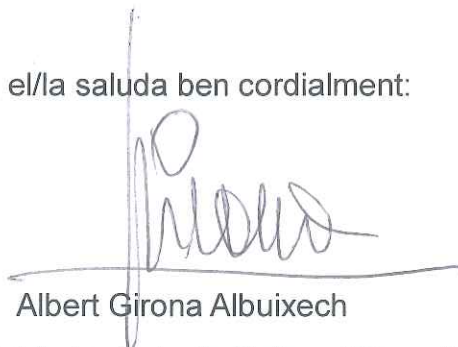 el/la saluda ben cordialment:
Girona
Albert Girona Albuixech